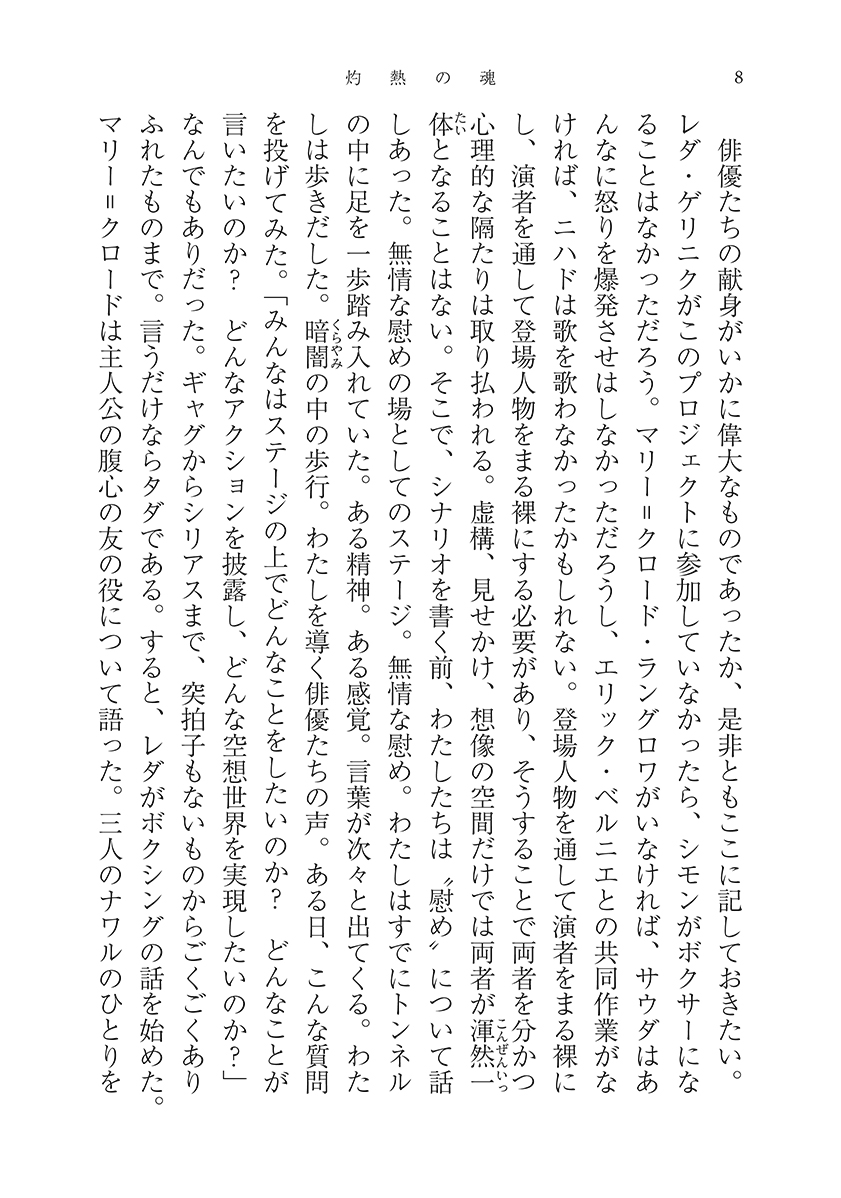 8
灼熱の魂
俳優たちの献身がいかに偉大なものであったか、是非ともここに記しておきたい。
レダ・ゲリニクがこのプロジェクトに参加していなかったら、シモンがボクサーにな
ることはなかっただろう。マリー＝クロード・ラングロワがいなければ、サウダはあ
んなに怒りを爆発させはしなかっただろうし、エリック・ベルニエとの共同作業がな
ければ、ニハドは歌を歌わなかったかもしれない。登場人物を通して演者をまる裸に
し、演者を通して登場人物をまる裸にする必要があり、そうすることで両者を分かつ
心理的な隔たりは取り払われる。虚構、見せかけ、想像の空間だけでは両者が渾然一
体となることはない。そこで、シナリオを書く前、わたしたちは〝慰め〟について話
しあった。無情な慰めの場としてのステージ。無情な慰め。わたしはすでにトンネル
の中に足を一歩踏み入れていた。ある精神。ある感覚。言葉が次々と出てくる。わた
しは歩きだした。暗闇の中の歩行。わたしを導く俳優たちの声。ある日、こんな質問
を投げてみた。「みんなはステージの上でどんなことをしたいのか？　どんなことが
言いたいのか？　どんなアクションを披露し、どんな空想世界を実現したいのか？」
なんでもありだった。ギャグからシリアスまで、突拍子もないものからごくごくあり
ふれたものまで。言うだけならタダである。すると、レダがボクシングの話を始めた。
マリー＝クロードは主人公の腹心の友の役について語った。三人のナワルのひとりを
こんぜんいっ
たい
くらやみ